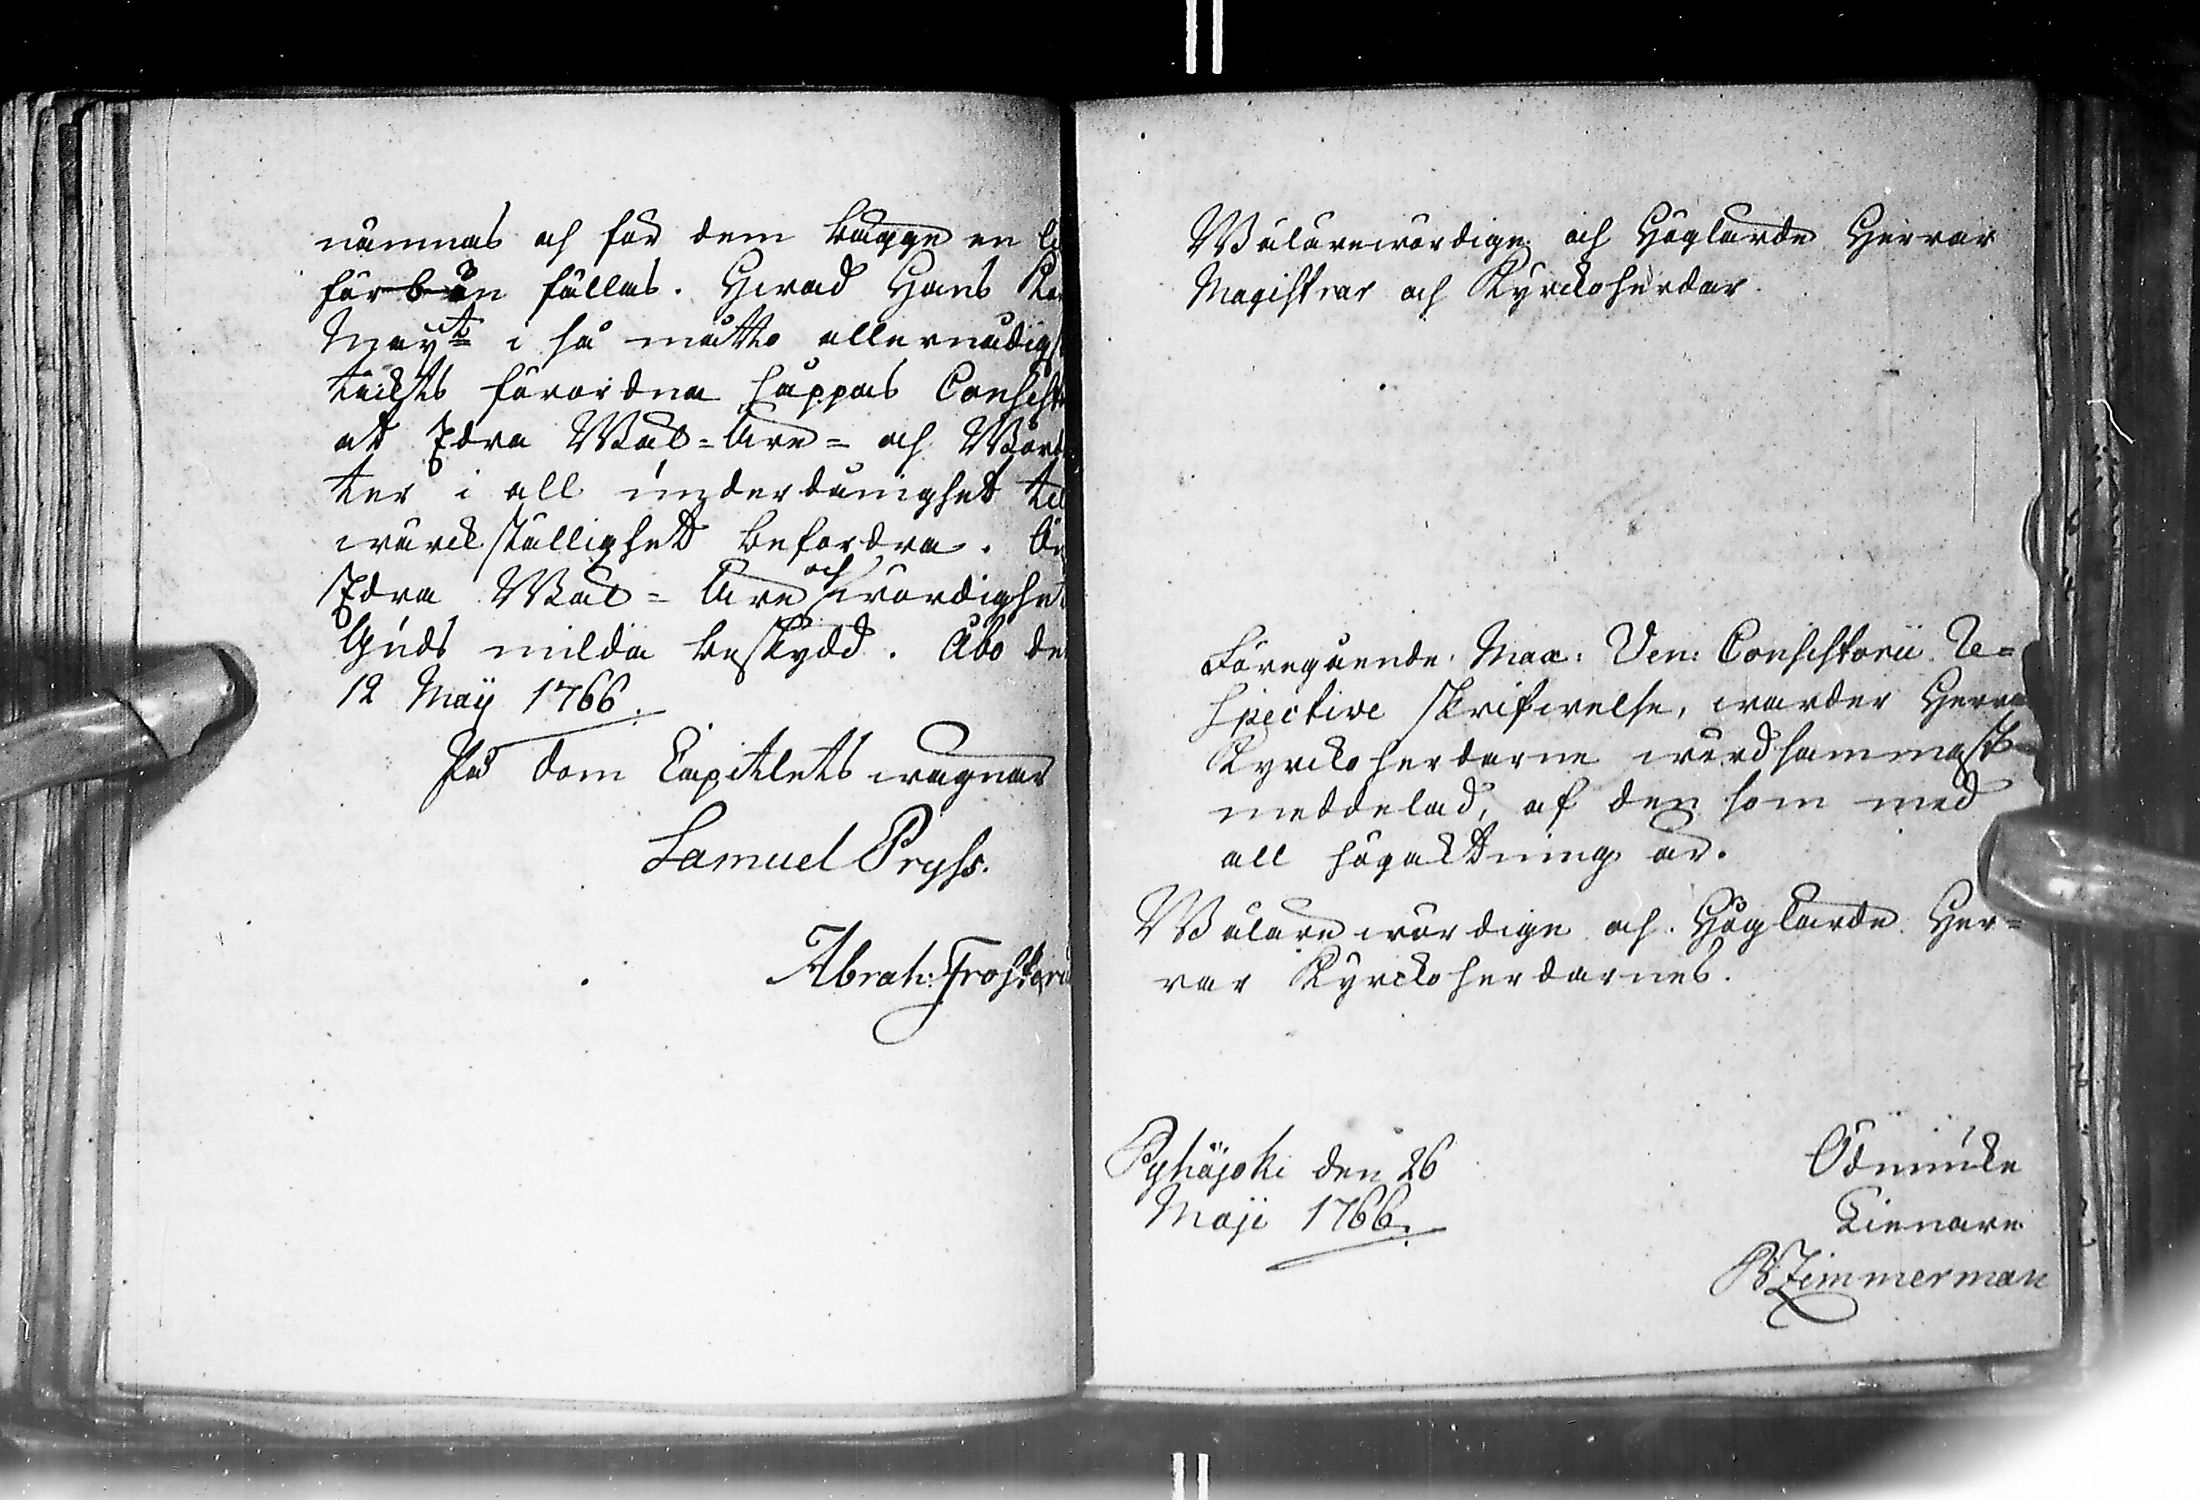 nämnas och för dem bägge en
förbön fällas. Hwad Hans
Mayt:s i så måtto allernådigst
täckts förordna håppas Consist
at Edra Wäl-Äre- och Wörd
ter i all underdånighet til
wärckställighet befordra.
Edra Wäl-Äre och wördighet
Guds milda beskydd. Åbo den
12 Maÿ 1766.
På Dom Capitlets wägnar
Samuel Pryss.
Abrah: Frosterus
Wälärewördige och Höglärde Herrar
Magistrar och Kyrckoherdar.
Föregående Max: Ven: Consistorii Re-
spective skrifwelse, warder Herrar
Kyrckoherdarne wördsammast
meddelad, af den som med
all högaktning är.
Wälärewördige och Höglärde Her-
rar Kyrckoherdarnes.
Pyhäjoki den 26
Maji 1766.
Ödmiuke
Tienare
Zimmerman